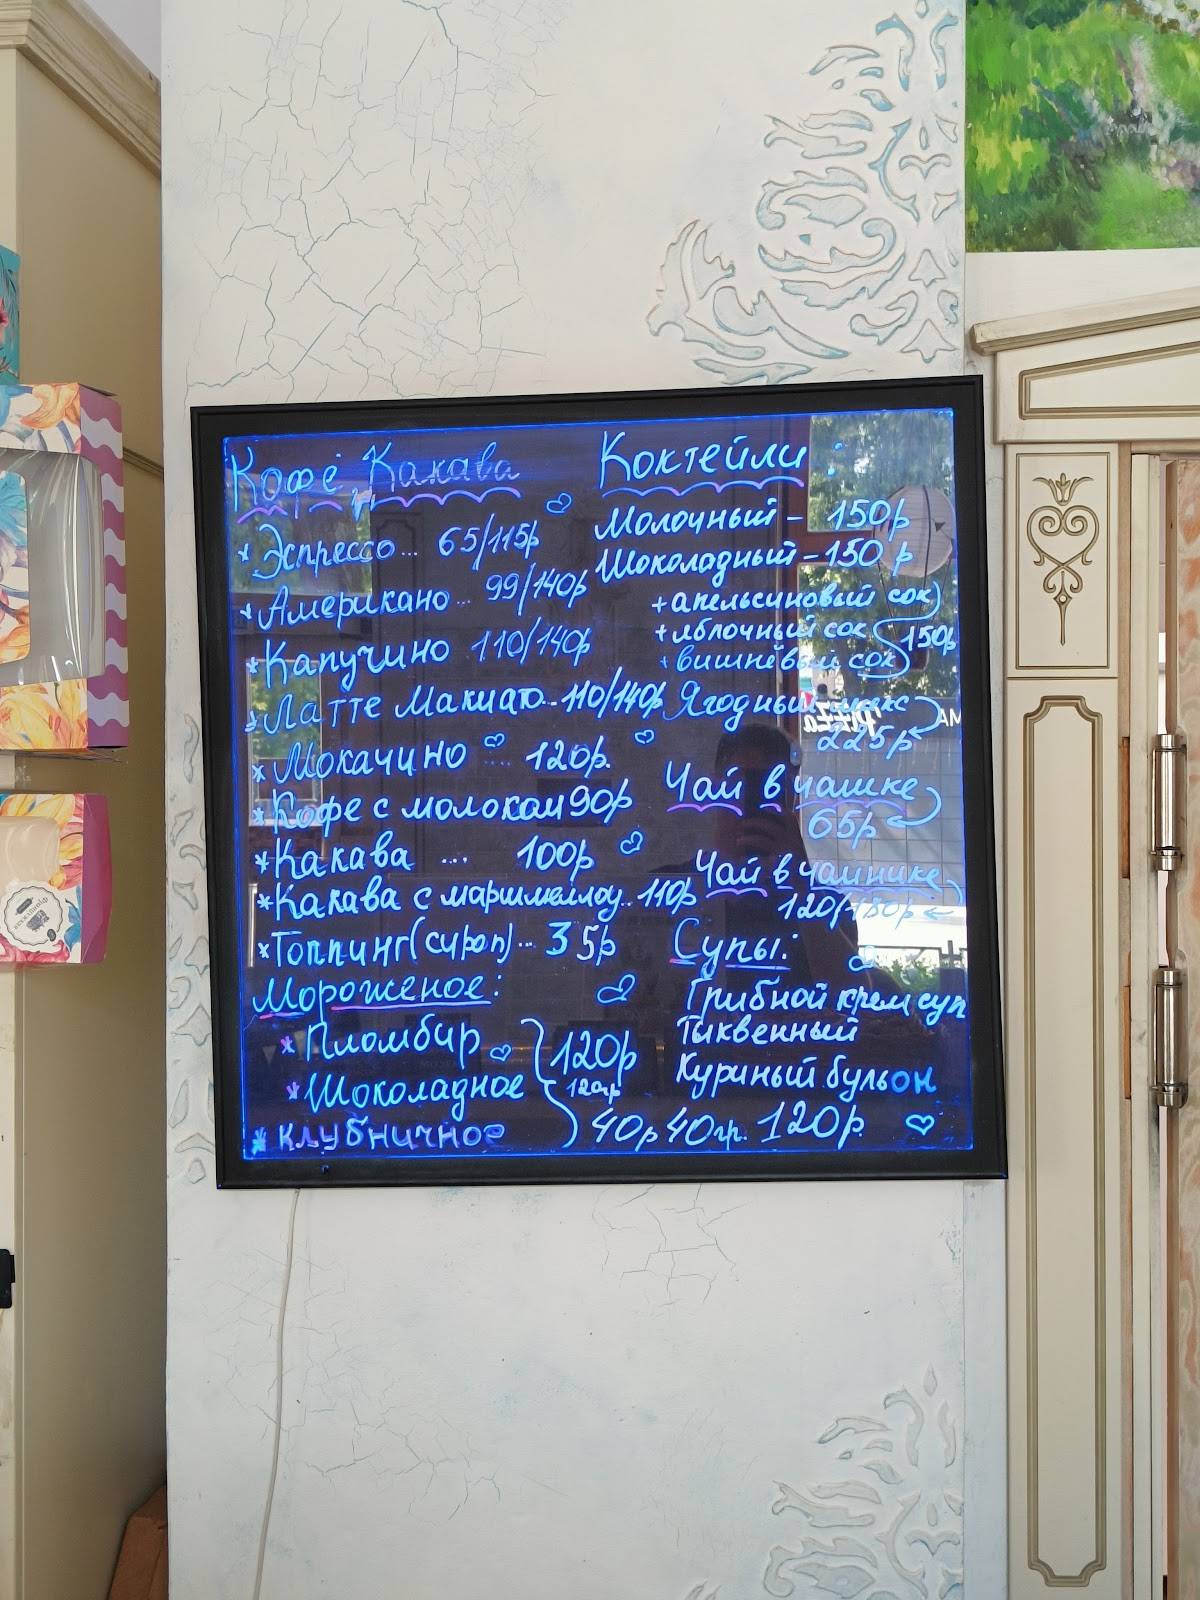 Кофе, Какава
* Эспрессо... 65/115р
* Американо... 99/140р
* Капучино 110/140р
* Латте Макиато...110/140р
* Мокачино .... 120р.
* Кофе с молоком 90р
* Какава ... 100р
* Какава с маршмеллоу..110р
* Топпинг (сироп)... 35р
Мороженое:
* Пломбир
* Шоколадное
* клубничное
120р
120гр
40р 40гр.
Коктейли :
Молочный - 150р
Шоколадный - 150 р
+ апельсиновый сок
+ яблочный сок
+ вишнёвый сок
150р
Ягодный микс
225р
Чай в чашке
65р
Чай в чайнике
Супы:
Грибной крем суп
Тыквенный
Куриный бульон
120р.